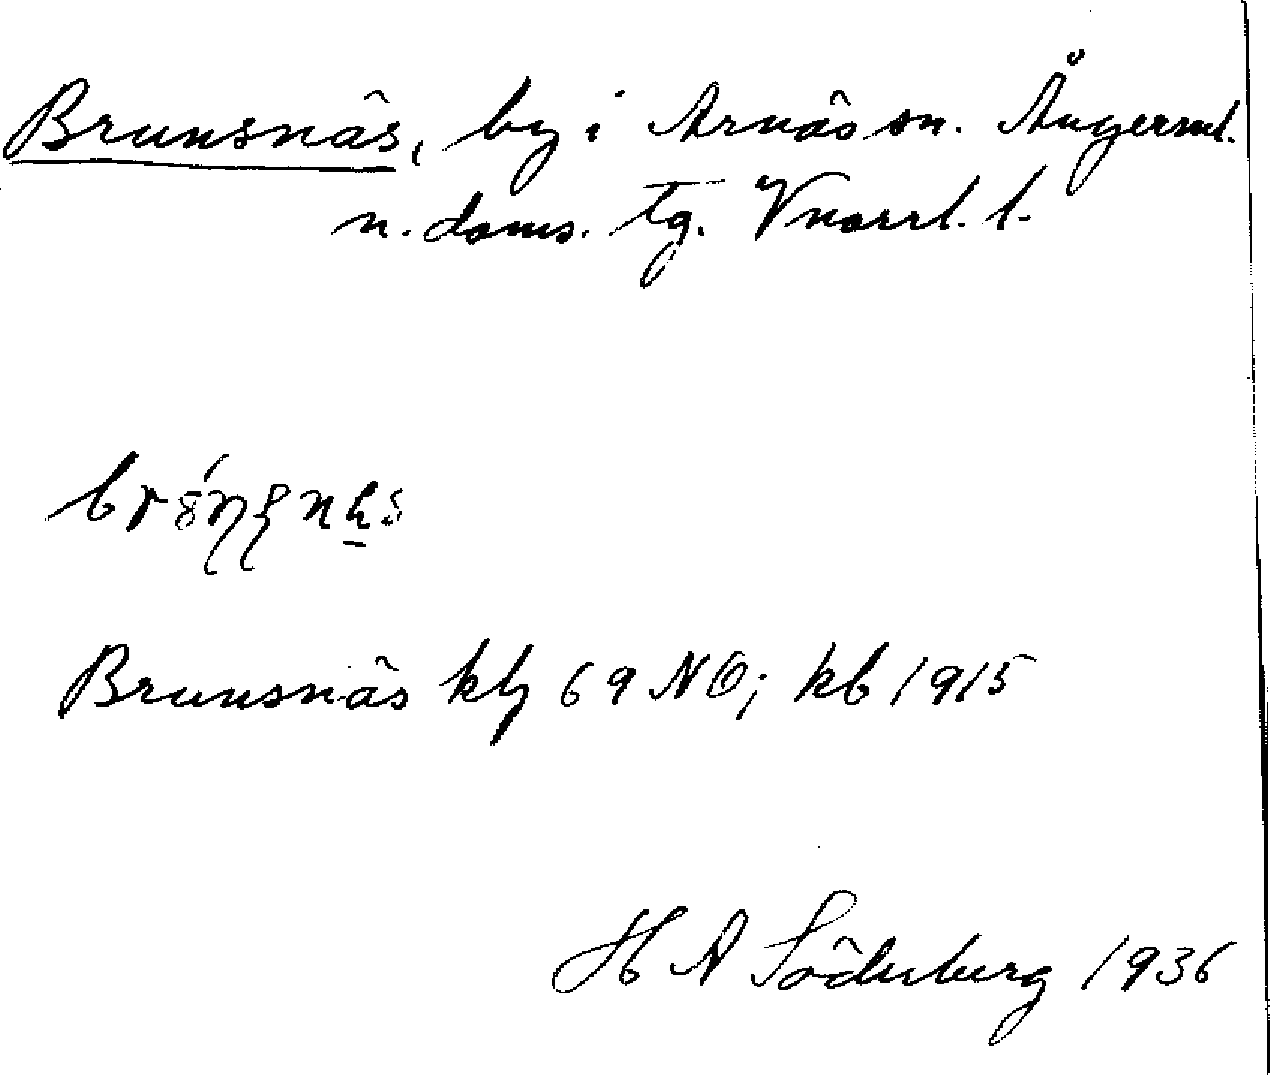 Brunsnäs, by i Arnäs sn. Ångerml.
n. doms. tg. Vnorrl. l.
Brunsnäs kb 69 NO; kb 1915
H A Söderberg 1936